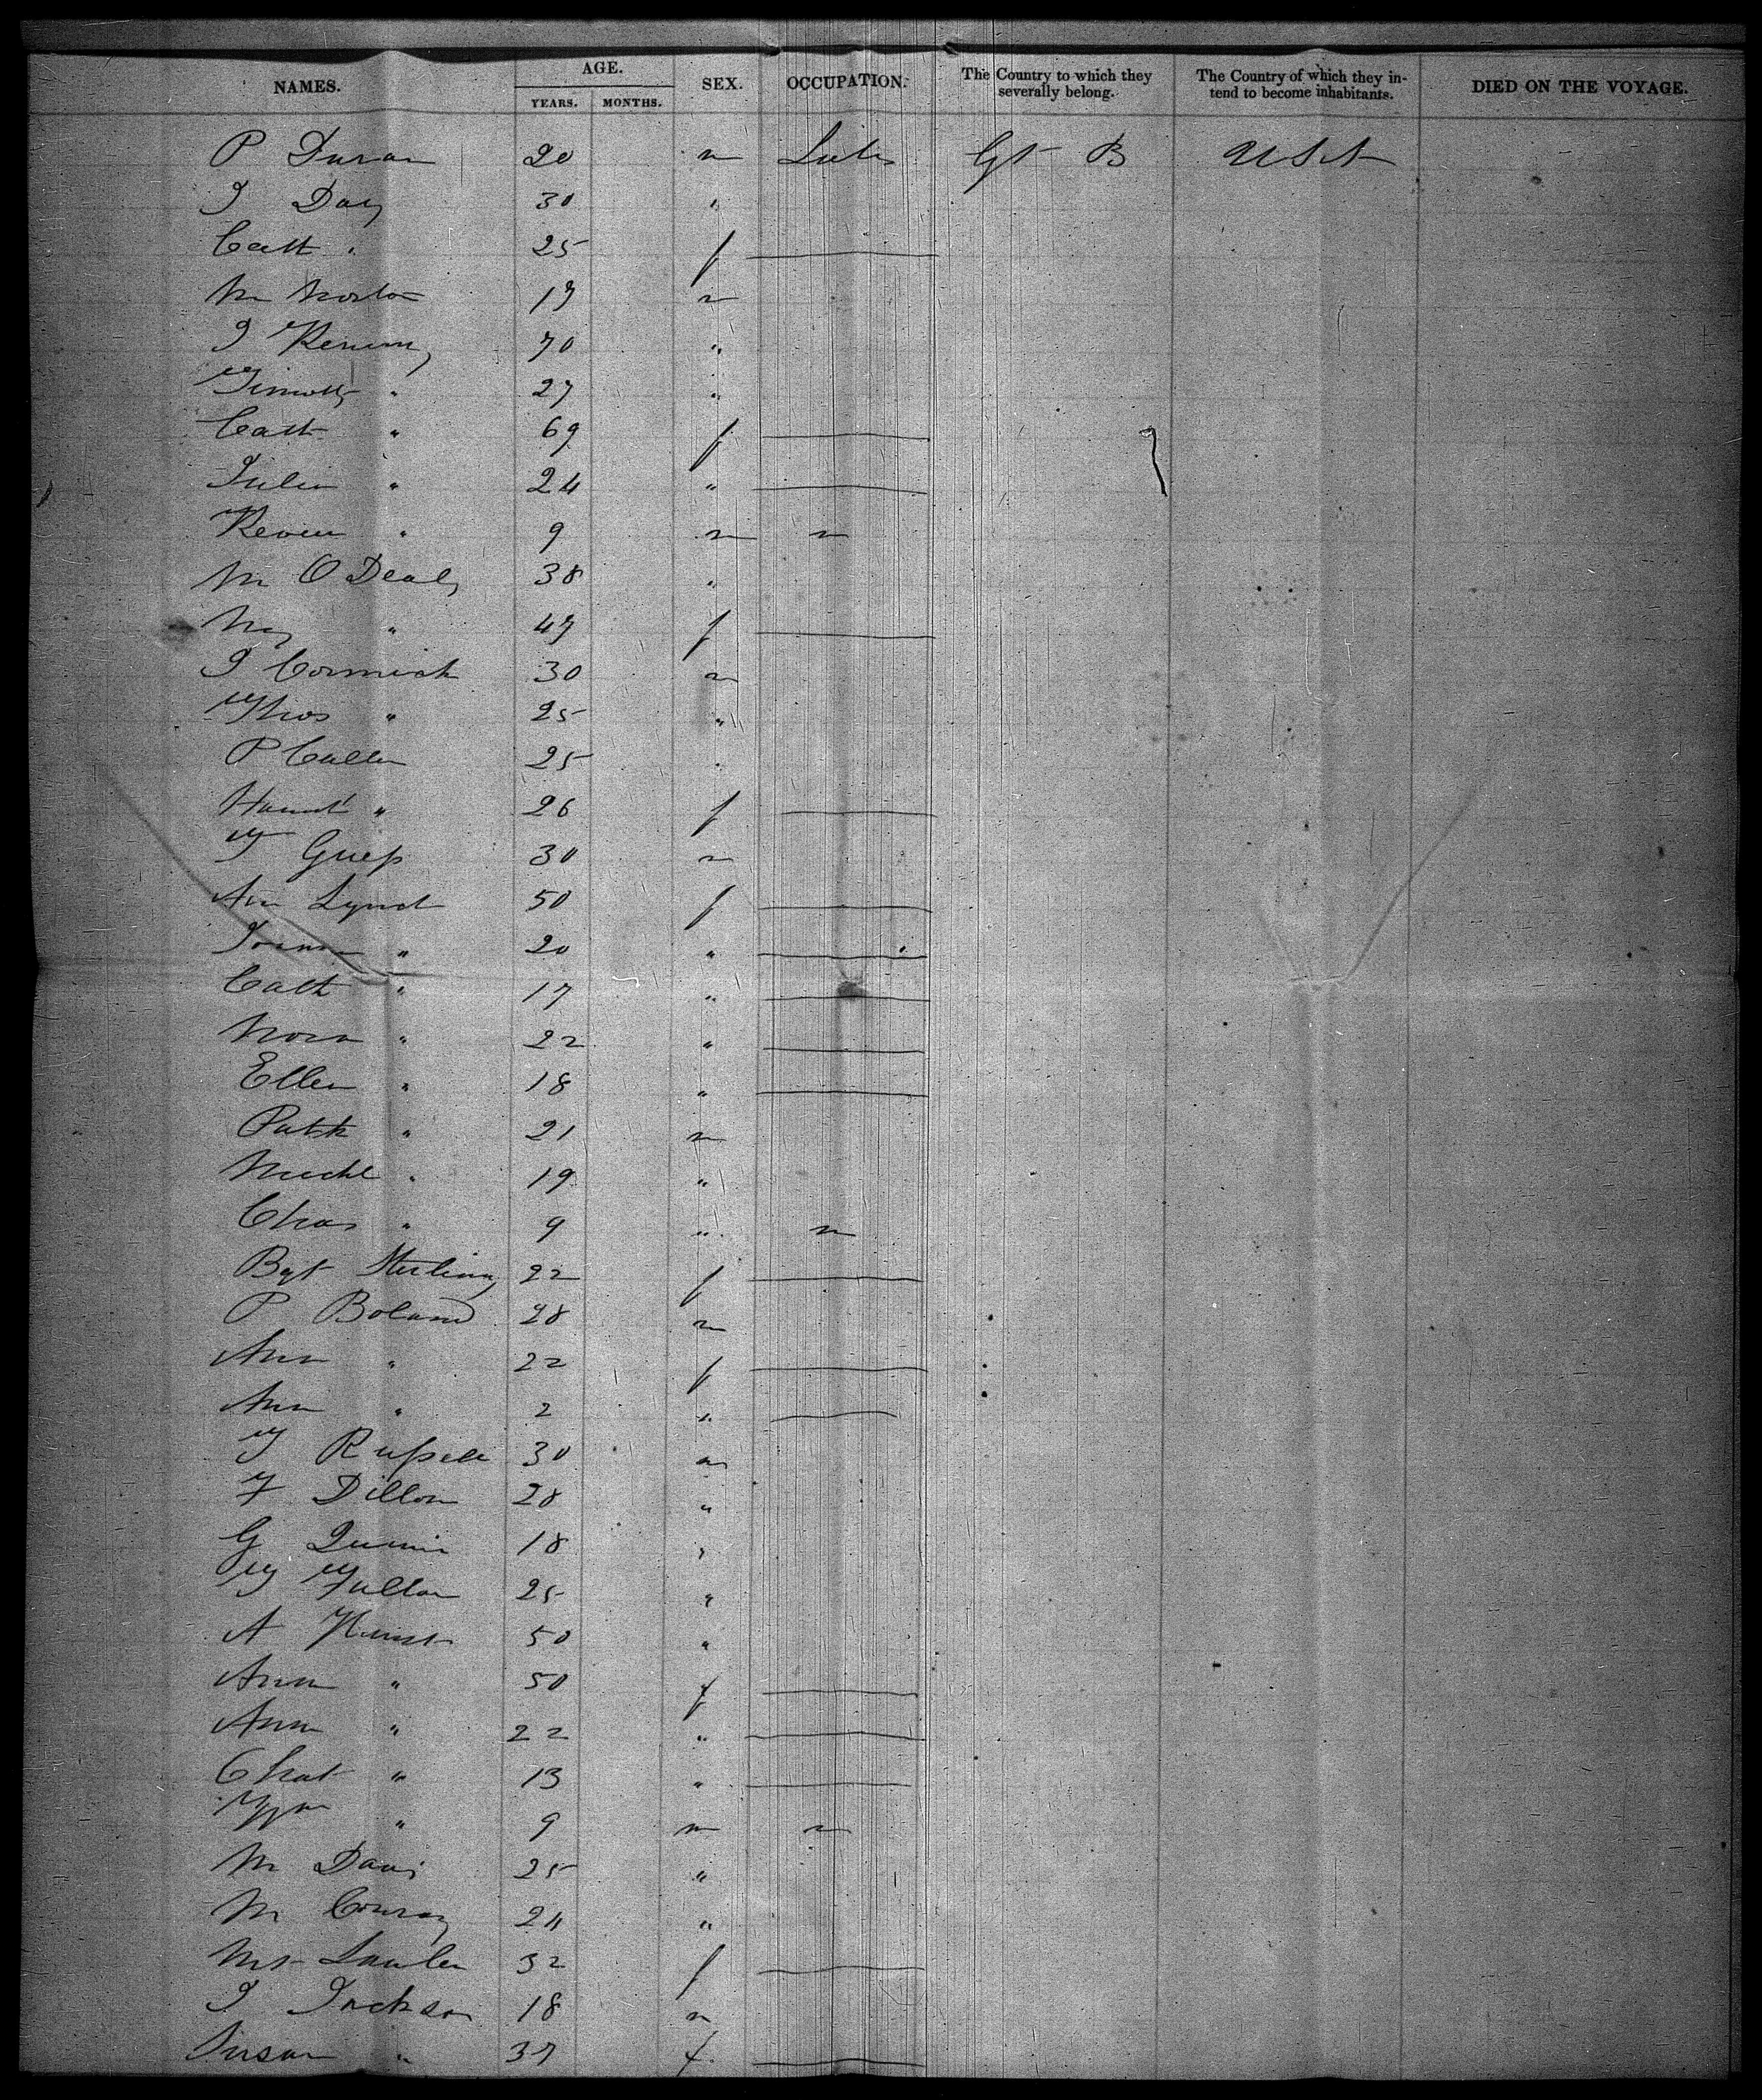 NAMES. AGE. YEARS. MONTHS. SEX. OCCUPATION. The Country to which they severally belong. The Country of which they intend to become inhabitants. DIED ON THE VOYAGE.
P 20 m Gt B USA
J Day 30 "
Cath " 25 f
M 17 m
J 70 "
Timothy " 27 "
Cath " 69 f
Julia " 24 "
" 9 m
M O Dealy 38 "
My " 47 f
J Cormick 30 m
Thos " 25 "
P Cullen 25 "
" 26 f
T 30 m
Ann Lynch 50 f
" 20 "
Cath " 17 "
Nora " 22 "
Ellen " 18 "
Patk " 21 m
Michl " 19 "
Chas " 9 "
Bgt Sterling 22 f
P Boland 28 m
Ann " 22 f
Ann " 2 "
T Russell 30 m
F Dillon 28 "
G Quinn 18 "
25 "
A 50 "
Ann " 50 f
Ann " 22 "
Chat " 13 "
Wm " 9 m
M Davis 25 "
M Conroy 24 "
Lawler 32 f
J Jackson 18 m
Susan " 37 f